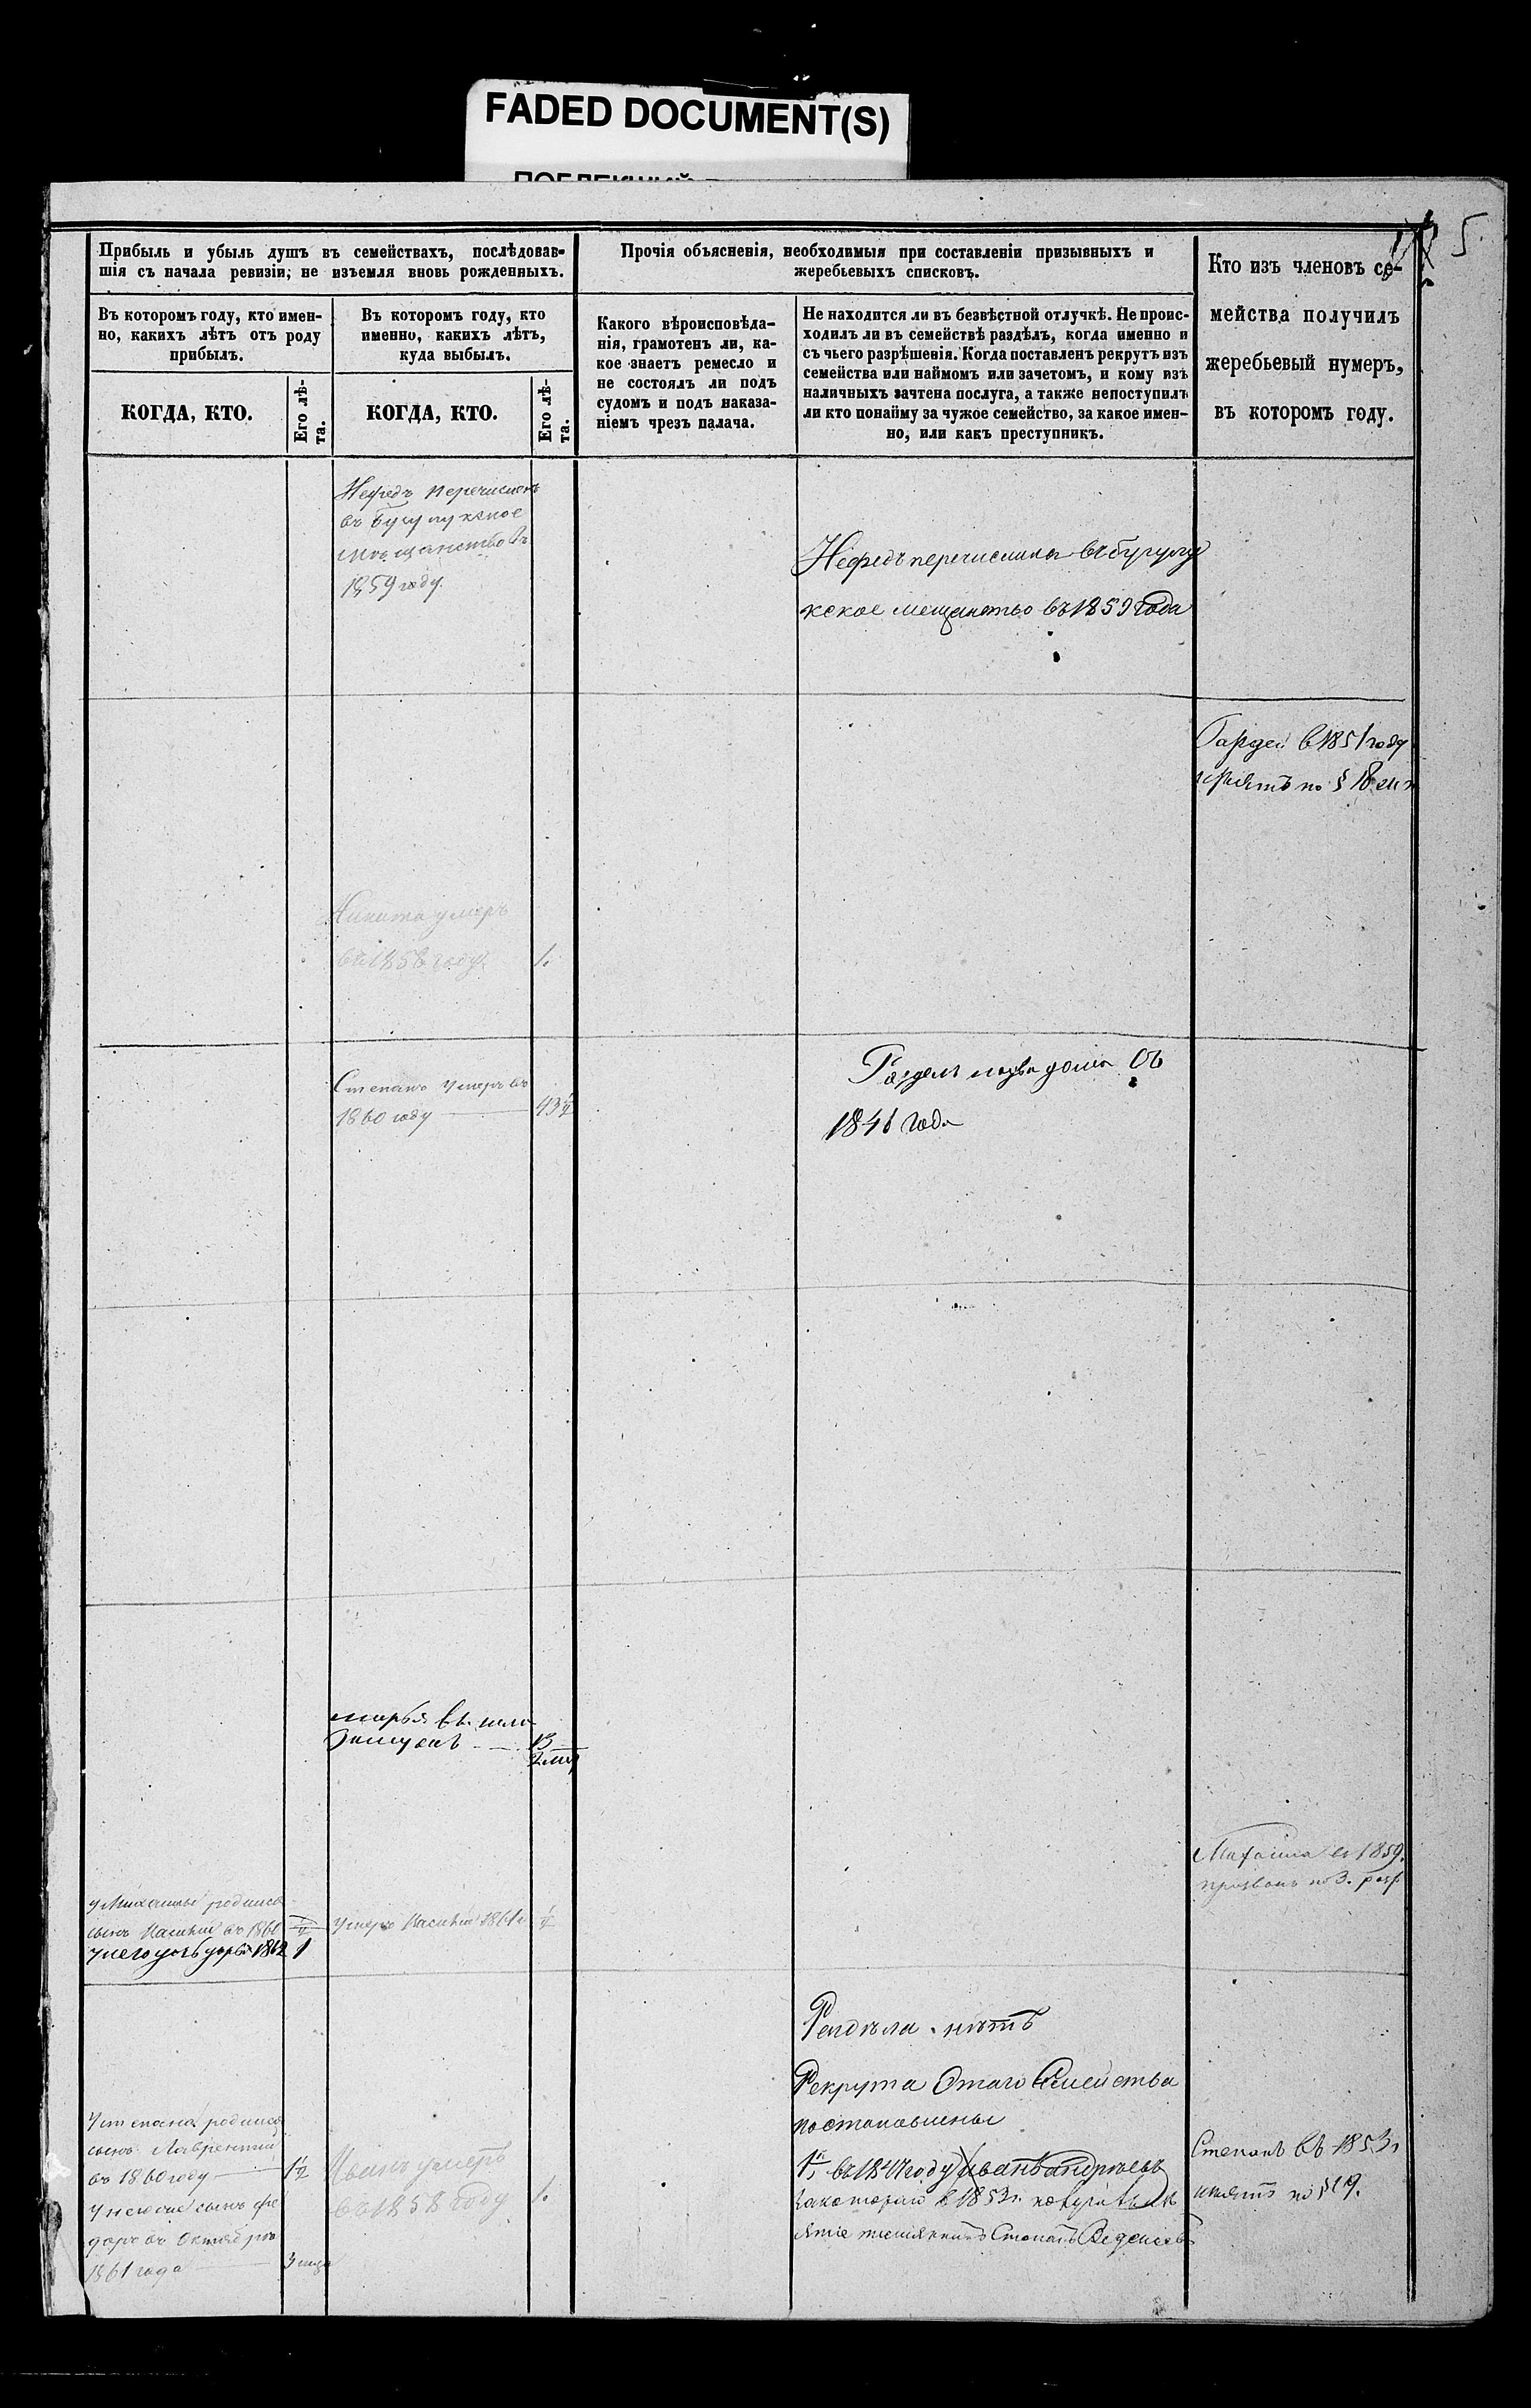 FADED DOCUMENT(S)
5.
Прибыль и убыль душъ въ семействахъ, послѣдовав-
шія съ начала ревизіи; не изъемля вновь рожденныхъ.
Въ которомъ году, кто имен-
но, какихъ лѣтъ отъ роду
прибылъ.
Въ которомъ году, кто
именно, какихъ лѣтъ,
куда выбылъ.
КОГДА, КТО.
Его лѣ-
та.
КОГДА, КТО.
Его лѣ-
та.
Прочія объясненія, необходимыя при составленіи призывныхъ и
жеребьевыхъ списковъ.
Какого вѣроисповѣда-
нія, грамотенъ ли, ка-
кое знаетъ ремесло и
не состоялъ ли подъ
судомъ и подъ наказа-
ніемъ чрезъ палача.
Не находится ли въ безвѣстной отлучкѣ. Не проис-
ходилъ ли въ семействѣ раздѣлъ, когда именно и
съ чьего разрѣшенія. Когда поставленъ рекрутъ изъ
семейства или наймомъ или зачетомъ, и кому изъ
наличныхъ зачтена послуга, а также непоступилъ
ли кто понайму за чужое семейство, за какое имен-
но, или какъ преступникъ.
Кто изъ членовъ се-
мейства получилъ
жеребьевый нумеръ,
въ которомъ году.
Нефедъ перечисленъ
въ Бугулукское
мѣщанство въ
1859 году.
Нефедъ перечисленъ въ бугулу
кское мещанство въ 1859 года
в 1851 году
по § 18
Никита умеръ
въ 1858 году
1.
Степанъ умеръ въ
1860 году
43½
Раздел дома Съ
1846 года
марья вышла
Замужъ
13
въ 1859.
призванъ по 3. разр.
у Михайлы родился
сынъ Василий въ 1860
умеръ Василий 1861 г
у него дочь 1862
1
Раздѣла нѣтъ
Рекрута Этаго Семейства
поставлены
въ 18 году Иванъ Андрѣевъ
в 1853 г.
Степанъ
Степанъ въ 1853 г
по § 19.
У Степана родился
сынъ Лаврентий
въ 1860 году
1½
У него же сынъ Фе
доръ въ Октябрѣ
1861 года
3 мца
Иванъ умеръ
въ 1858 году
1.